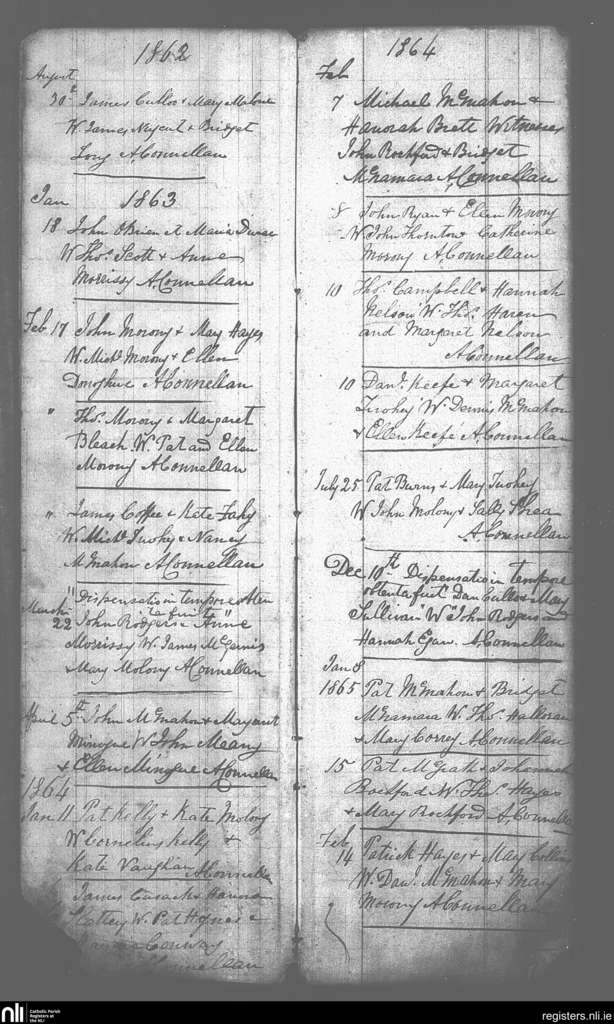 1862
August
20th James Cullos & Mary Malone
W. James Nugent & Bridget
Long AConnellan
Jan 1863
18 John OBrien et Maria
W Thos. Scott & Anne
Morrissy AConnellan
Feb 17 John Morony & Mary Hayes
W. Michl Morony & Ellen
Donoghue AConnellan
" Thos. Morony & Margaret
Bleach W. Pat and Ellen
Morony AConnellan
" James Coffee & Kate Fahy
W. Michl Tuohy & Nancy
McMahon AConnellan
" Dispensatio in tempore
March
22 John Rodgers & Anne
Morrissy W. James McGinnis
& Mary Molony AConnellan
April 5th John McMahon & Margaret
Minogue W John Meany
& Ellen Minogue AConnellan
1864
Jan 11 Pat Kelly & Kate Molony
W Cornelius Kelly &
Kate Vaughan AConnellan
James Cusack &
Slattery W. Pat Hynes &
Conway
AConnellan
1864
Feb
7 Michael McMahon &
Hanorah Brett Witnesses
John Rochford & Bridget
McNamara AConnellan
8 John Ryan & Ellen Morony
W. John Thornton & Catherine
Morony AConnellan
10 Thos. Campbell & Hannah
Nelson W. Thos. Haren
and Margaret Nelson
AConnellan
10 Danl. Keefe & Margaret
Twohey W. Dennis McMahon
& Ellen Keefe AConnellan
July 25 Pat Burns & Mary Tuohey
W John Molony & Sally Shea
AConnellan
Dec 10th Dispensatio in tempore
obtenta fuit Dan Cullo & Mary
Sullivan W John Rodgers and
Hannah Egan. AConnellan
Jan 8
1865 Pat McMahon & Bridget
McNamara W. Thos. Halloran
& Mary Correy AConnellan
15 Pat McGrath & Johannah
Rochford W. Thos. Hayes
& Mary Rochford AConnellan
Feb
14 Patrick Hayes & Mary Collins
W. Danl. McMahon & Mary
Morony AConnellan
nli Catholic Parish
Registers at
the NLI
registers.nli.ie